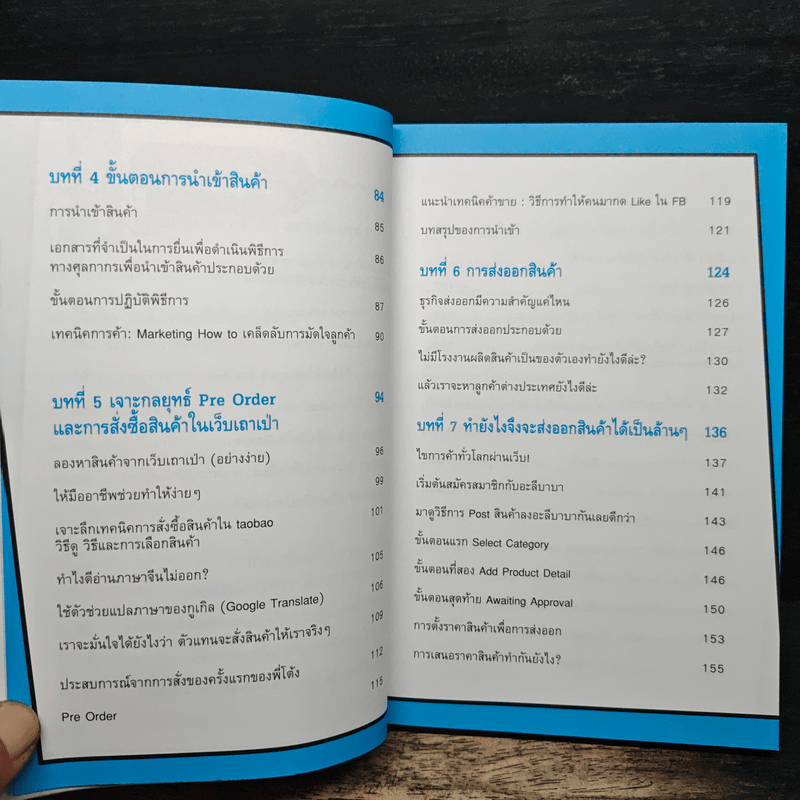 บทที่ 4 ขั้นตอนการนำเข้าสินค้า 84
การนำเข้าสินค้า 85
เอกสารที่จำเป็นในการยื่นเพื่อดำเนินพิธีการ
ทางศุลกากรเพื่อนำเข้าสินค้าประกอบด้วย 86
ขั้นตอนการปฏิบัติพิธีการ 87
เทคนิคการค้า: Marketing How to เคล็ดลับการมัดใจลูกค้า 90
บทที่ 5 เจาะกลยุทธ์ Pre Order 94
และการสั่งซื้อสินค้าในเว็บเถาเป่า
ลองหาสินค้าจากเว็บเถาเป่า (อย่างง่าย) 96
ให้มืออาชีพช่วยทำให้ง่ายๆ 99
เจาะลึกเทคนิคการสั่งซื้อสินค้าใน taobao 101
วิธีดู วิธีและการเลือกสินค้า
ทำไงดีอ่านภาษาจีนไม่ออก? 105
ใช้ตัวช่วยแปลภาษาของกูเกิล (Google Translate) 106
เราจะมั่นใจได้ยังไงว่า ตัวแทนจะสั่งสินค้าให้เราจริงๆ 109
ประสบการณ์จากการสั่งของครั้งแรกของพี่โต้ง 112
Pre Order 115
แนะนำเทคนิคค้าขาย : วิธีการทำให้คนมากด Like ใน FB 119
บทสรุปของการนำเข้า 121
บทที่ 6 การส่งออกสินค้า 124
ธุรกิจส่งออกมีความสำคัญแค่ไหน 126
ขั้นตอนการส่งออกประกอบด้วย 127
ไม่มีโรงงานผลิตสินค้าเป็นของตัวเองทำยังไงดีล่ะ? 130
แล้วเราจะหาลูกค้าต่างประเทศยังไงดีล่ะ 132
บทที่ 7 ทำยังไงจึงจะส่งออกสินค้าได้เป็นล้านๆ 136
ไขการค้าทั่วโลกผ่านเว็บ! 137
เริ่มต้นสมัครสมาชิกกับอะลีบาบา 141
มาดูวิธีการ Post สินค้าลงอะลีบาบากันเลยดีกว่า 143
ขั้นตอนแรก Select Category 146
ขั้นตอนที่สอง Add Product Detail 146
ขั้นตอนสุดท้าย Awaiting Approval 150
การตั้งราคาสินค้าเพื่อการส่งออก 153
การเสนอราคาสินค้าทำกันยังไง? 155